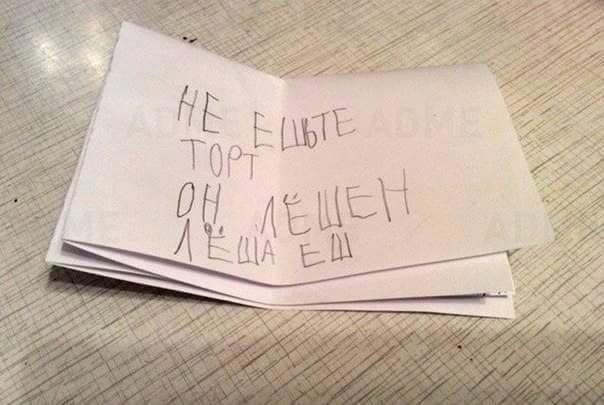 НЕ ЕШЬТЕ
ТОРТ
ОН ЛЁШЕН
ЛЁША ЕШ
ADME
ADME
ADME